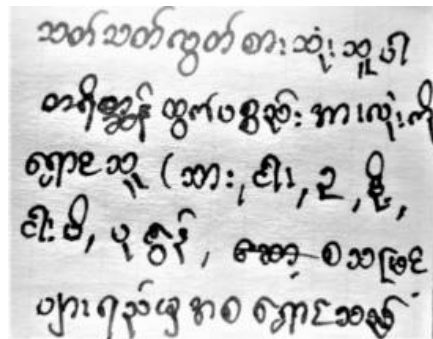 သတ်သတ်လွတ်စားသုံးသူပါ
တရိစ္ဆာန် ထွက်ပစ္စည်း အားလုံးကို
ရှောင်သူ (သား, ငါး, ဥ, နို့,
ငါးပိ, ပုစွန်, စသဖြင့်
များရည်ယမှအစ ရှောင်သည်